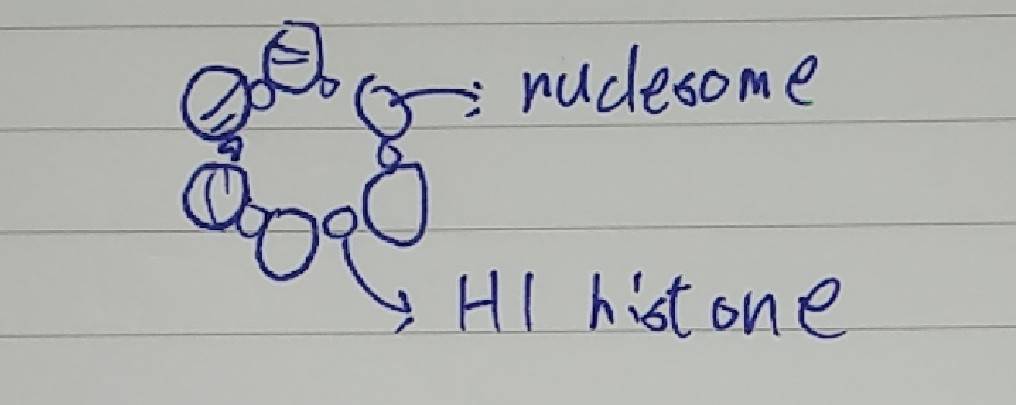 nuclesome
H1 histone